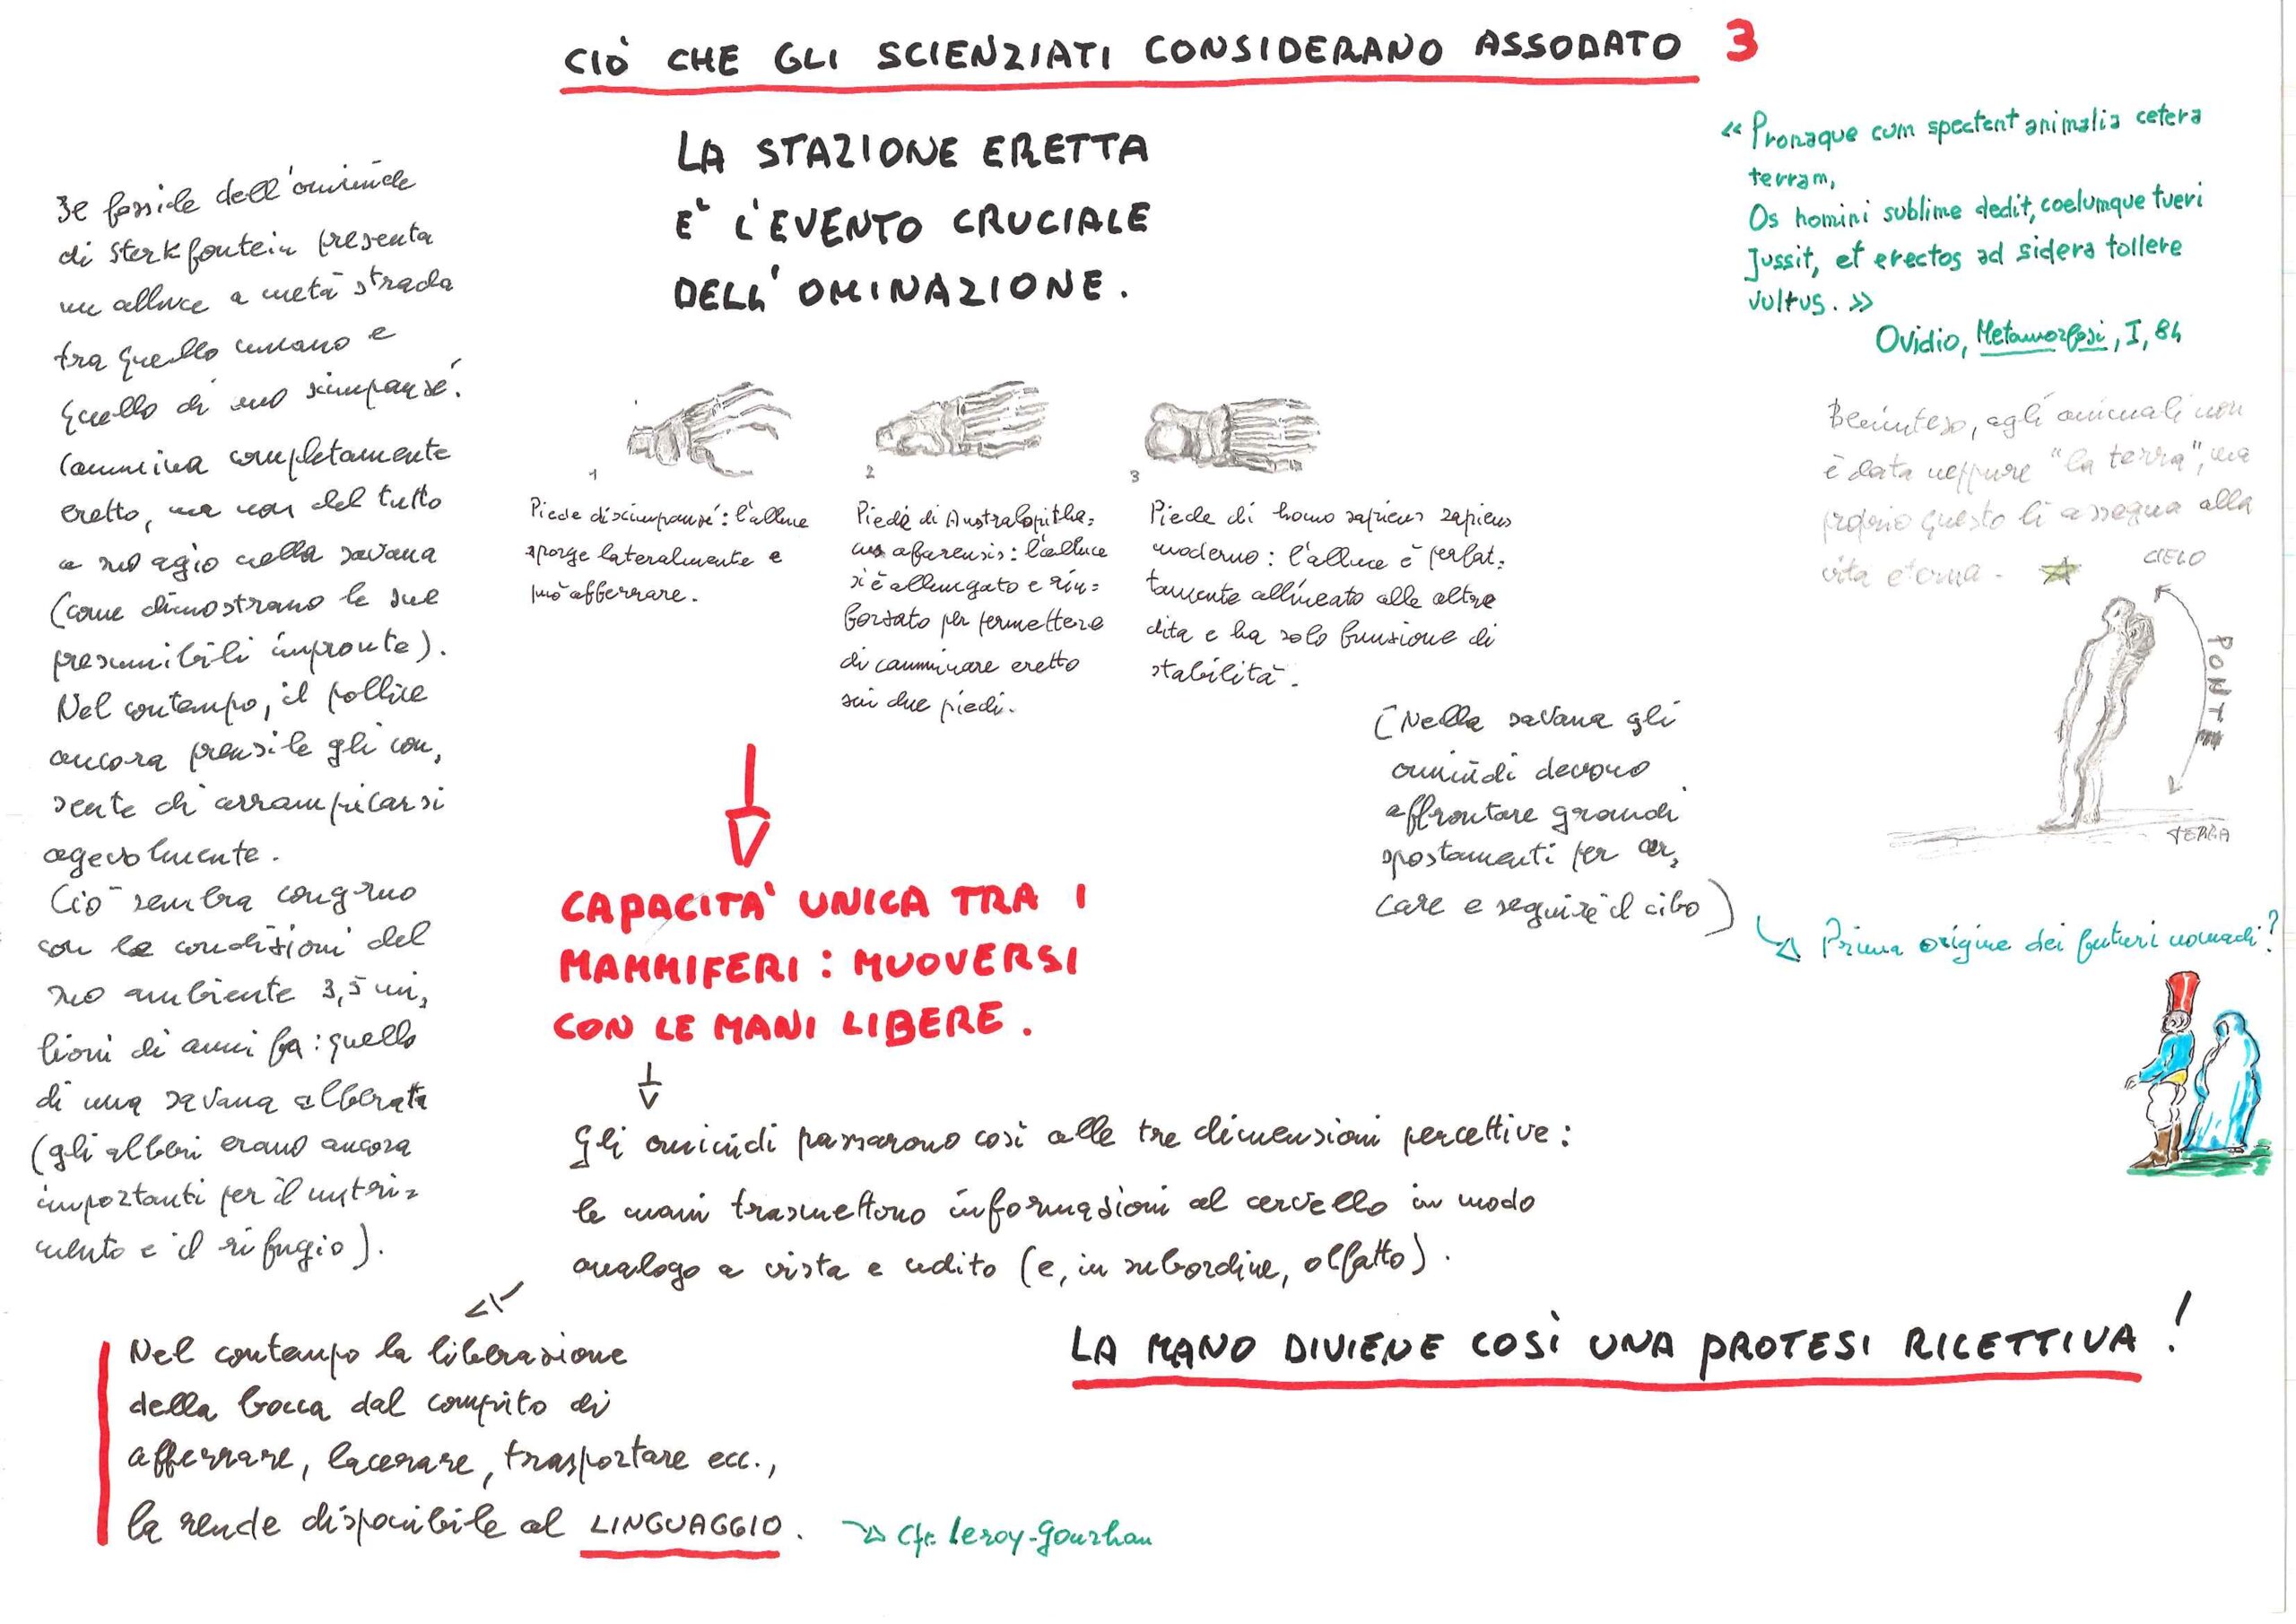 CIÒ CHE GLI SCIENZIATI CONSIDERANO ASSODATO 3
LA STAZIONE ERETTA
E' L'EVENTO CRUCIALE
DELL'OMINAZIONE.
Il fossile dell'ominide
di Sterkfontein presenta
un alluce a metà strada
tra quello umano e
quello di uno scimpanzé.
Cammina completamente
eretto, ma non del tutto
a suo agio nella savana
(come dimostrano le sue
presumibili impronte).
Nel contempo, il pollice
ancora prensile gli con,
sente di arrampicarsi
agevolmente.
Ciò sembra congruo
con le condizioni del
suo ambiente 3,5 mi,
lioni di anni fa: quello
di una savana alberata
(gli alberi erano ancora
importanti per il nutri=
mento e il rifugio).
1
Piede di scimpanzé: l'alluce
sporge lateralmente e
può afferrare.
2
Piede di Australopithe=
cus afarensis: l'alluce
si è allungato e rin=
forzato per permettere
di camminare eretto
sui due piedi.
3
Piede di homo sapiens sapiens
moderno: l'alluce è perfet=
tamente allineato alle altre
dita e ha solo funzione di
stabilità.
(Nella savana gli
ominidi devono
affrontare grandi
spostamenti per cer,
care e seguire il cibo)
Prima origine dei futuri nomadi?
« Pronaque cum spectent animalia cetera
terram,
Os homini sublime dedit, coelumque tueri
Jussit, et erectos ad sidera tollere
vultus. »
Ovidio, Metamorfosi, I, 84
Beninteso, agli animali non
è data neppure "la terra", ma
proprio questo li assegna alla
vita eterna.
CIELO
PONTE
TERRA
CAPACITA' UNICA TRA I
MAMMIFERI: MUOVERSI
CON LE MANI LIBERE.
Gli ominidi passarono così alle tre dimensioni percettive:
le mani trasmettono informazioni al cervello in modo
analogo a vista e udito (e, in subordine, olfatto).
LA MANO DIVIENE COSÌ UNA PROTESI RICETTIVA!
Nel contempo la liberazione
della bocca dal compito di
afferrare, lacerare, trasportare ecc.,
la rende disponibile al LINGUAGGIO.
Cfr. Leroy-Gourhan